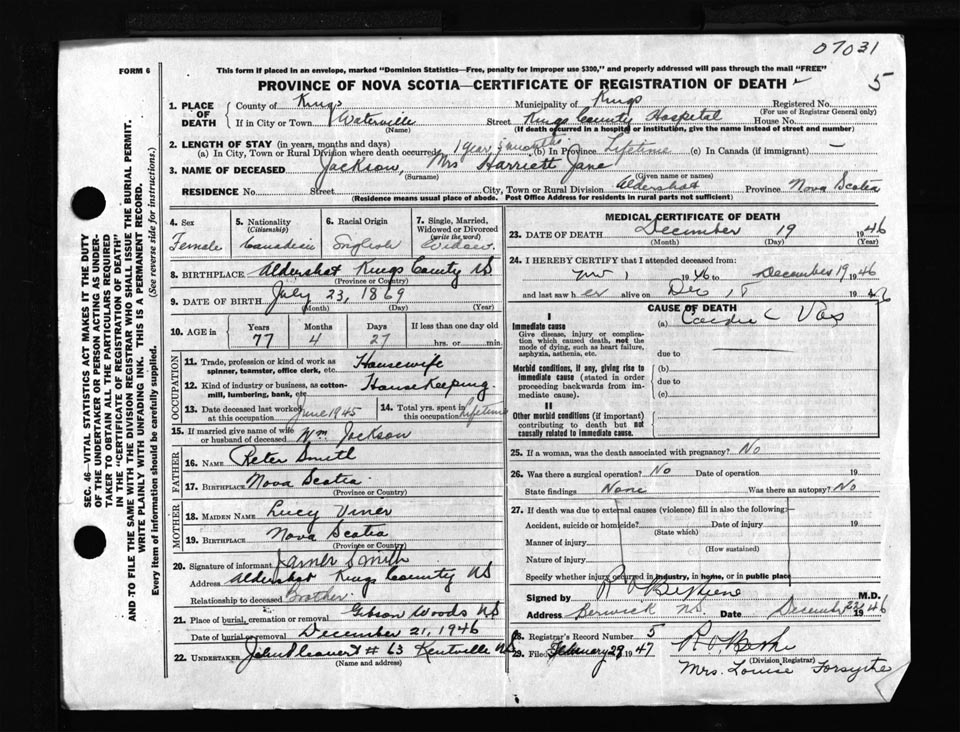 07031
5
FORM 6
This form if placed in an envelope, marked "Dominion Statistics—Free, penalty for improper use $300," and properly addressed will pass through the mail "FREE"
PROVINCE OF NOVA SCOTIA—CERTIFICATE OF REGISTRATION OF DEATH
1. PLACE OF DEATH County of Kings Municipality of Kings Registered No.
(For use of Registrar General only)
If in City or Town Waterville Street Kings County Hospital House No.
(Name) (If death occurred in a hospital or institution, give the name instead of street and number)
2. LENGTH OF STAY (in years, months and days)
(a) In City, Town or Rural Division where death occurred 1 year, months (b) In Province Lifetime (c) In Canada (if immigrant) —
3. NAME OF DECEASED Jackson, Mrs Harriett Jane
(Surname) (Given name or names)
RESIDENCE No. Street City, Town or Rural Division Aldershot Province Nova Scotia
(Residence means usual place of abode. Post Office Address for residents in rural parts not sufficient)
4. Sex Female
5. Nationality (Citizenship) Canadian
6. Racial Origin English
7. Single, Married, Widowed or Divorced (write the word) Widow
8. BIRTHPLACE Aldershot Kings County NS
(Province or Country)
9. DATE OF BIRTH July 23, 1869
(Month) (Day) (Year)
10. AGE in Years Months Days If less than one day old
77 4 27 hrs. or min.
OCCUPATION
11. Trade, profession or kind of work as spinner, teamster, office clerk, etc. Housewife
12. Kind of industry or business, as cotton-mill, lumbering, bank, etc. Housekeeping
13. Date deceased last worked at this occupation June 1945
14. Total yrs. spent in this occupation Lifetime
15. If married give name of wife or husband of deceased Wm Jackson
FATHER
16. NAME Peter Smith
17. BIRTHPLACE Nova Scotia
(Province or Country)
MOTHER
18. MAIDEN NAME Lucy Viner
19. BIRTHPLACE Nova Scotia
(Province or Country)
20. Signature of informant James Smith
Address Aldershot Kings County NS
Relationship to deceased Brother
21. Place of burial, cremation or removal Gibson Woods NS
Date of burial or removal December 21, 1946
22. UNDERTAKER # 63 Kentville NS
(Name and address)
MEDICAL CERTIFICATE OF DEATH
23. DATE OF DEATH December 19 1946
(Month) (Day) (Year)
24. I HEREBY CERTIFY that I attended deceased from:
1 1946 to December 19 1946
and last saw her alive on Dec 18 1946
CAUSE OF DEATH
I
Immediate cause
Give disease, injury or complication which caused death, not the mode of dying, such as heart failure, asphyxia, asthenia, etc.
(a)
due to
Morbid conditions, if any, giving rise to immediate cause (stated in order proceeding backwards from immediate cause).
(b)
due to
(c)
II
Other morbid conditions (if important) contributing to death but not causally related to immediate cause.
25. If a woman, was the death associated with pregnancy? No
26. Was there a surgical operation? No Date of operation 19
State findings None Was there an autopsy? No
27. If death was due to external causes (violence) fill in also the following:—
Accident, suicide or homicide? Date of injury 19
(State which)
Manner of injury
(How sustained)
Nature of injury
Specify whether injury occurred in industry, in home, or in public place
Signed by M.D.
Address Berwick NS. Date December 1946
28. Registrar's Record Number 5
29. Filed February 1947
(Division Registrar)
Mrs. Louise Forsythe
SEC. 46—VITAL STATISTICS ACT MAKES IT THE DUTY
OF THE UNDERTAKER OR PERSON ACTING AS UNDERTAKER TO OBTAIN ALL THE PARTICULARS REQUIRED
IN THE "CERTIFICATE OF REGISTRATION OF DEATH"
AND TO FILE THE SAME WITH THE DIVISION REGISTRAR WHO SHALL ISSUE THE BURIAL PERMIT.
WRITE PLAINLY WITH UNFADING INK. THIS IS A PERMANENT RECORD.
Every item of information should be carefully supplied. (See reverse side for instructions.)